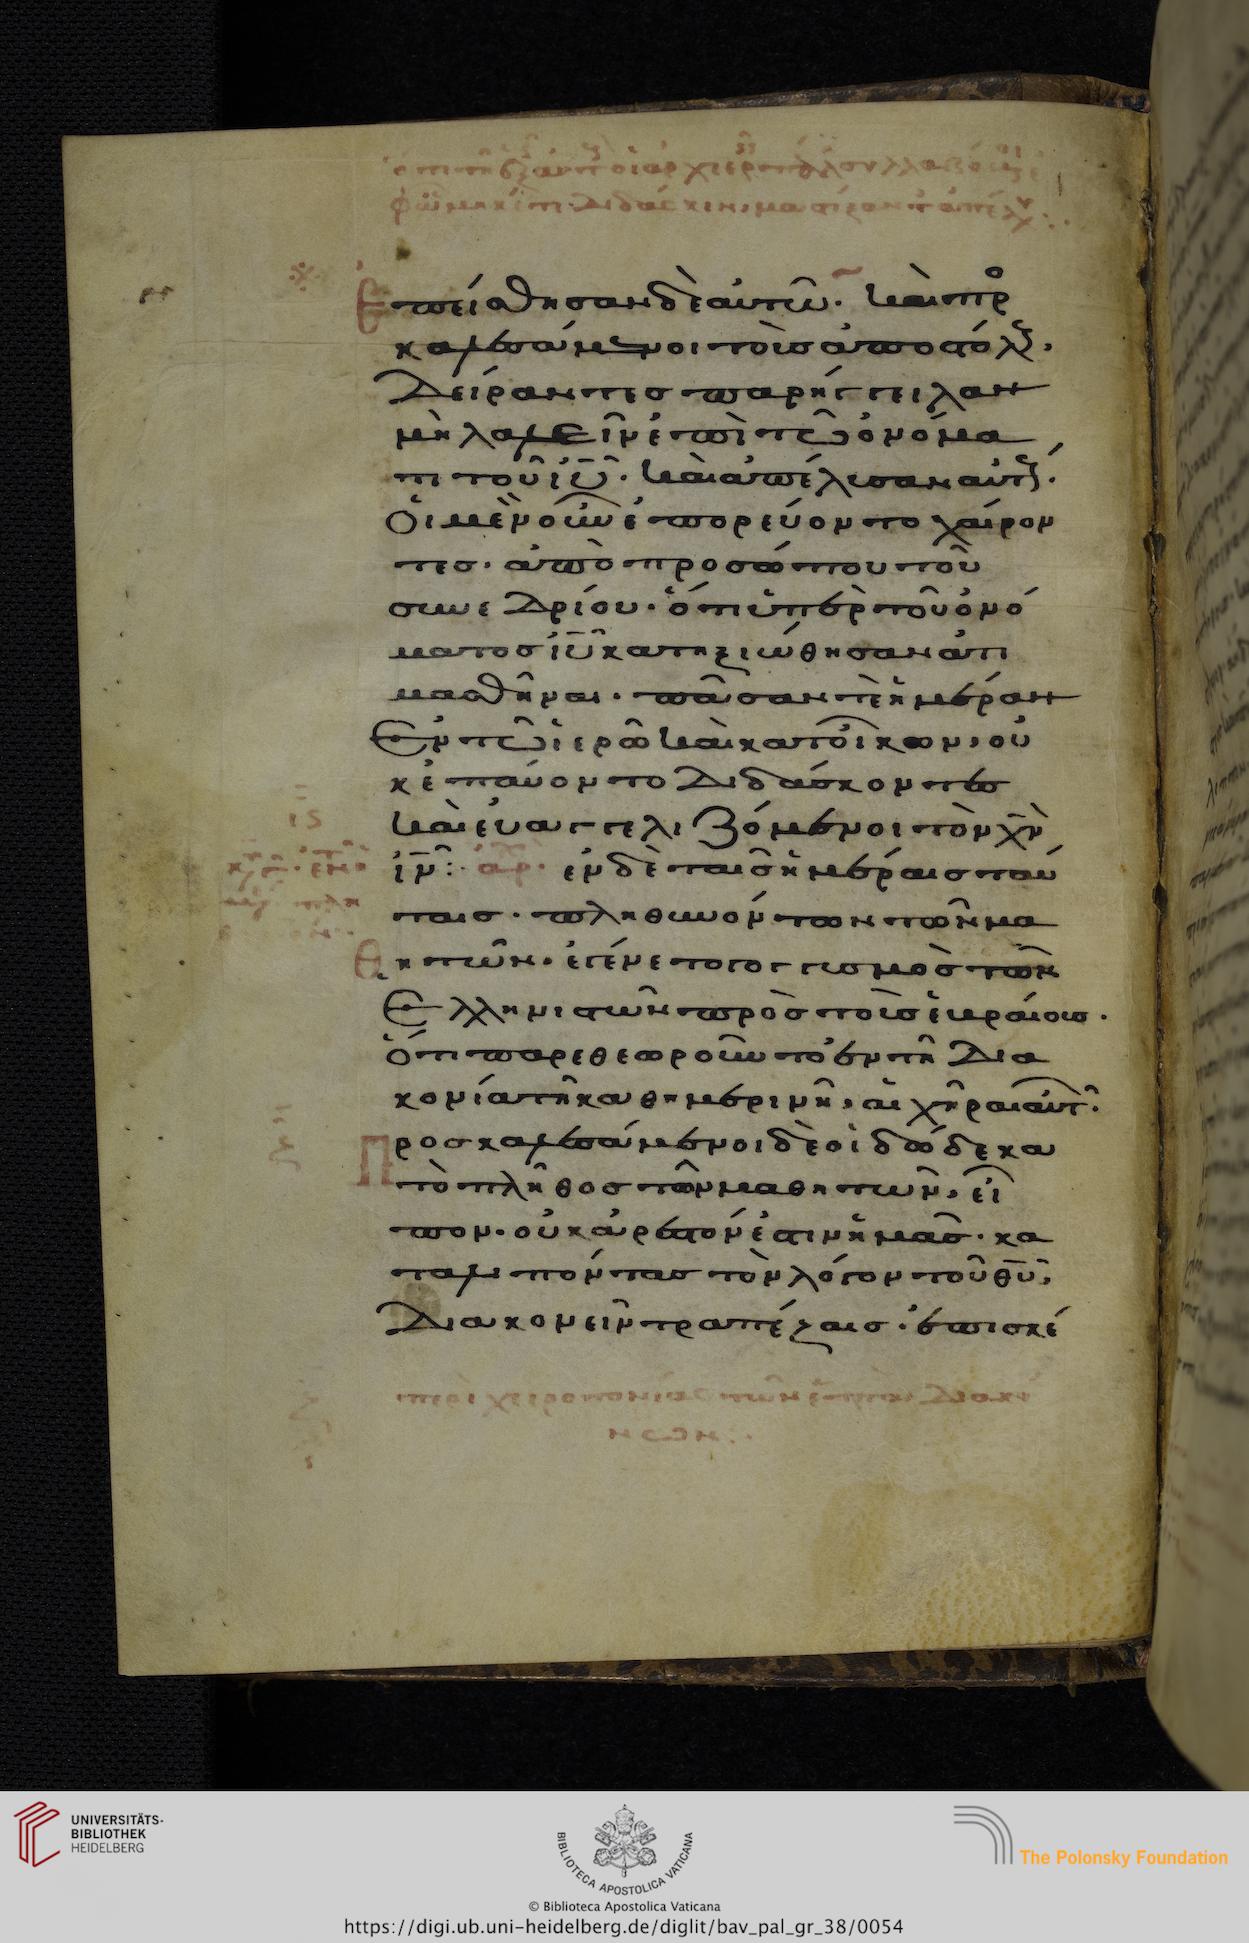 Ἐπείσθησαν δὲ αὐτῶ. καὶ προ
καλεσάμενοι τοὺς ἀποστόλ,
δείραντες παρήγγειλαν
μὴ λαλεῖν ἐπὶ τῶ ὀνόμα
τι τοῦ ἰῦ. καὶ ἀπέλυσαν αὐτ.
Οἱ μὲν οὖν ἐπορεύοντο χαίρον
τες. ἀπὸ προσώπου τοῦ
συνεδρίου. ὅτι ὑπὲρ τοῦ ὀνό
ματος ἰῦ κατηξιώθησαν ἀτι
μασθῆναι. πᾶσαν τὲ ἡμέραν
ἐν τῶ ἱερῶ καὶ κατοίκων, οὐ
κ ἐπαύοντο διδάσκοντες
καὶ εὐαγγελιζόμενοι τὸν χν
ἰν: αρ. ἐν δὲ ταῖς ἡμέραις ταύ
ταις. πληθυνόντων τῶν μα
θητῶν. ἐγένετο γογγυσμὸς τῶν
Ἑλληνιστῶν πρὸς τοὺς ἑβραίους.
ὅτι παρεθεωροῦντο ἐν τῆ δια
κονία τῆ καθημερινῆ, αἱ χῆραι αὐτ.
Προσκαλεσάμενοι δὲ οἱ δώδεκα
τὸ πλῆθος τῶν μαθητῶν, εἶ
πον. οὐκ ἀρεστόν ἐστιν ἡμᾶς. κα
ταλιπόντας τὸν λόγον τοῦ θῦ,
διακονεῖν τραπέζαις. ἐπισκέ
περὶ χειροτονίας τῶν ἑπτὰ διακό
νων:
UNIVERSITÄTS-
BIBLIOTHEK
HEIDELBERG
BIBLIOTECA APOSTOLICA VATICANA
The Polonsky Foundation
© Biblioteca Apostolica Vaticana
https://digi.ub.uni-heidelberg.de/diglit/bav_pal_gr_38/0054